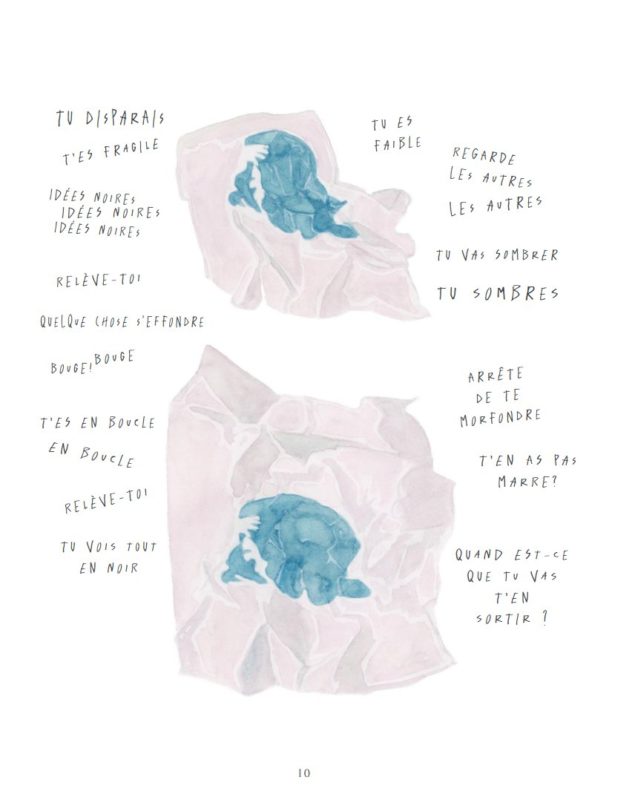 TU DISPARAIS
T'ES FRAGILE
IDÉES NOIRES
IDÉES NOIRES
IDÉES NOIRES
RELÈVE-TOI
QUELQUE CHOSE S'EFFONDRE
BOUGE! BOUGE
T'ES EN BOUCLE
EN BOUCLE
RELÈVE-TOI
TU VOIS TOUT
EN NOIR
TU ES
FAIBLE
REGARDE
LES AUTRES
LES AUTRES
TU VAS SOMBRER
TU SOMBRES
ARRÊTE
DE TE
MORFONDRE
T'EN AS PAS
MARRE?
QUAND EST-CE
QUE TU VAS
T'EN
SORTIR ?
10